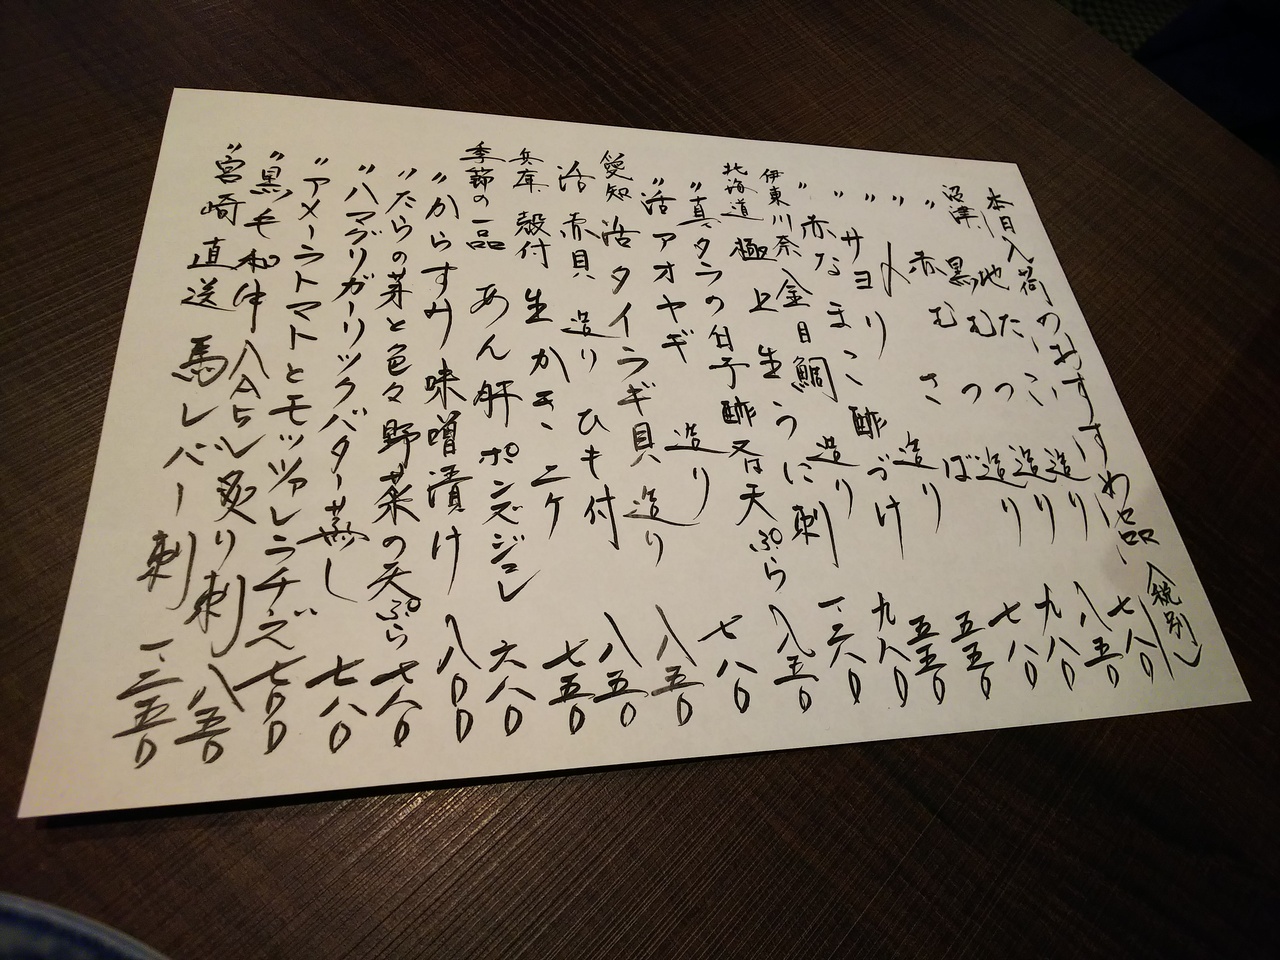 本日入荷のおすすめ品 (税別)
沼津 地だい 造り 七八〇
〃 黒むつ 造り 八五〇
〃 赤むつ 造り 九八〇
〃 〆さば 七八〇
〃 サヨリ 造り 五五〇
〃 赤なまこ 酢づけ 五五〇
伊東川奈 金目鯛 造り 九八〇
北海道 極上生うに刺
〃 真タラの白子 酢又は天ぷら 八五〇
〃 活アオヤギ 造り 七八〇
愛知 活タイラギ貝 造り 八五〇
活赤貝 造り ひも付 八五〇
兵庫 殻付 生かき 二ケ 七五〇
季節の一品 あん肝ポンズジュレ 六八〇
〃からすみ味噌漬け 八八〇
〃たらの芽と色々野菜の天ぷら 七八〇
〃ハマグリガーリックバター蒸し 七八〇
〃アメーラトマトとモッツァレラチーズ 七〇〇
〃黒毛和牛 A5 炙り刺 八五〇
〃宮崎直送 馬レバー刺 一、三五〇